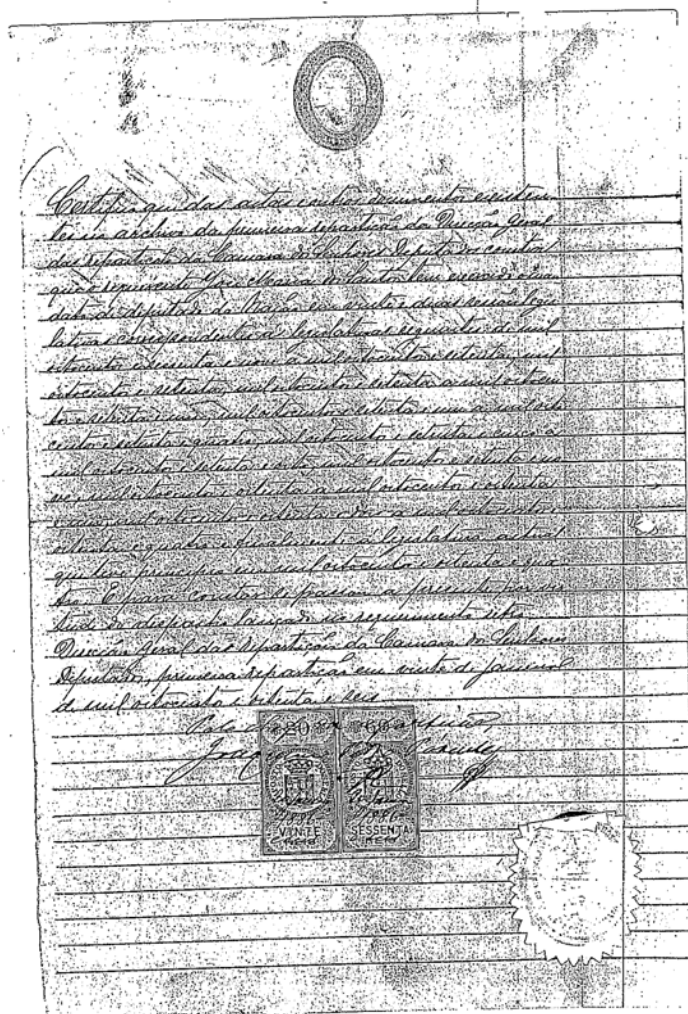 Certifico que das actas e outros documentos existen-
tes no archivo da primeira repartição da Direcção Geral
das repartições da Camara dos Senhores Deputados consta
que o requerente José Maria dos Santos tem exercido o man-
dato de deputado da Nação em vinte e duas sessões legis-
lativas correspondentes ás legislaturas seguintes: de mil
oitocentos e sessenta e nove a mil oitocentos e setenta, mil
oitocentos e setenta, mil oitocentos e setenta a mil oitocen-
tos e setenta e um, mil oitocentos e setenta e um a mil oito-
centos e setenta e quatro, mil oitocentos e setenta e cinco a
mil oitocentos e setenta e oito, mil oitocentos e setenta e no-
ve, mil oitocentos e oitenta a mil oitocentos e oitenta
e um, mil oitocentos e oitenta e dois a mil oitocentos e
oitenta e quatro e finalmente a legislatura actual
que teve principio em mil oitocentos e oitenta e qua-
tro. E para constar se passou a presente por vir-
tude do despacho lançado no requerimento retro.
Direcção Geral das repartições da Camara dos Senhores
Deputados, primeira repartição em vinte de Janeiro
de mil oitocentos e oitenta e seis.
Pelo repartição,
80 60
1886 1886
VINTE SESSENTA
REIS REIS